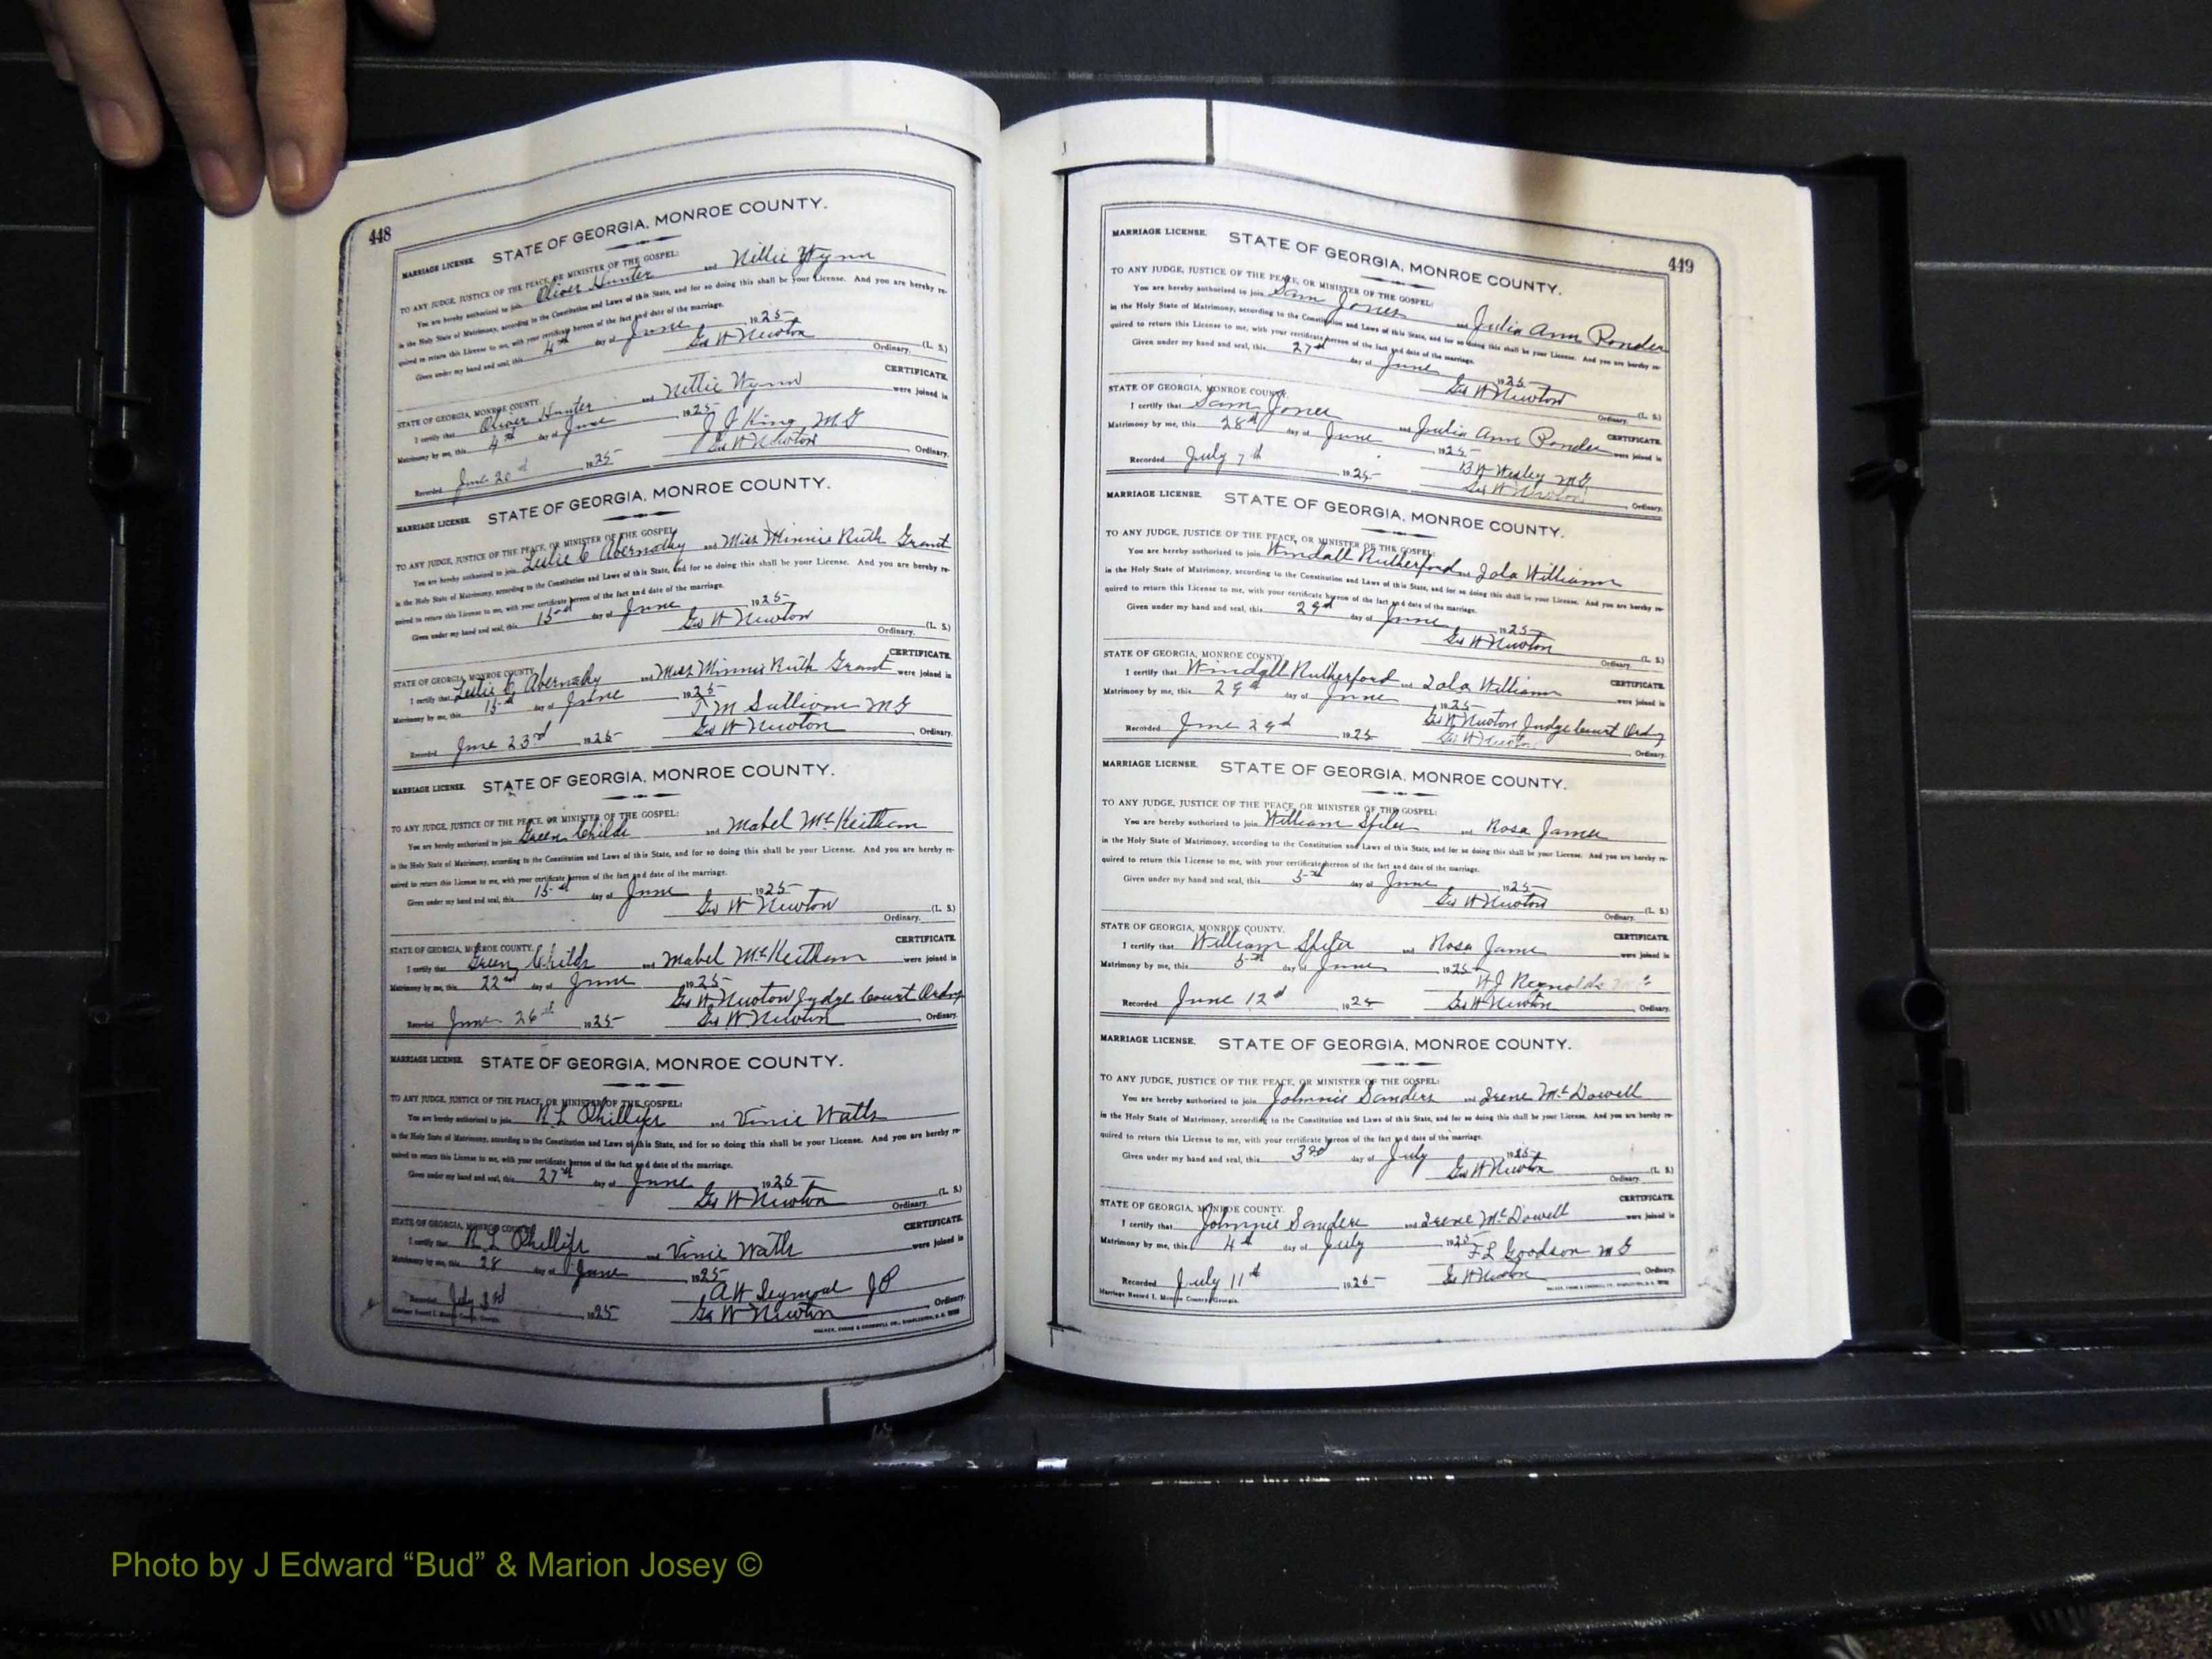 448
MARRIAGE LICENSE. STATE OF GEORGIA, MONROE COUNTY.
TO ANY JUDGE, JUSTICE OF THE PEACE, OR MINISTER OF THE GOSPEL:
You are hereby authorized to join Oliver Hunter and Nellie Wynn
in the Holy State of Matrimony, according to the Constitution and Laws of this State, and for so doing this shall be your License. And you are hereby re-
quired to return this License to me, with your certificate hereon of the fact and date of the marriage.
Given under my hand and seal, this 4th day of June 1925
Geo W Newton (L. S.)
Ordinary.
STATE OF GEORGIA, MONROE COUNTY. CERTIFICATE.
I certify that Oliver Hunter and Nettie Wynn were joined in
Matrimony by me, this 4th day of June 1925
J J King, M G
Recorded June 20d 1925 Geo W Newton Ordinary.
MARRIAGE LICENSE. STATE OF GEORGIA, MONROE COUNTY.
TO ANY JUDGE, JUSTICE OF THE PEACE, OR MINISTER OF THE GOSPEL:
You are hereby authorized to join Leslie C Abernathy and Miss Minnie Ruth Grant
in the Holy State of Matrimony, according to the Constitution and Laws of this State, and for so doing this shall be your License. And you are hereby re-
quired to return this License to me, with your certificate hereon of the fact and date of the marriage.
Given under my hand and seal, this 15d day of June 1925
Geo W Newton (L. S.)
Ordinary.
STATE OF GEORGIA, MONROE COUNTY. CERTIFICATE.
I certify that Leslie C Abernathy and Miss Minnie Ruth Grant were joined in
Matrimony by me, this 15d day of June 1925
M Sullivan M G
Recorded June 23rd 1925 Geo W Newton Ordinary.
MARRIAGE LICENSE. STATE OF GEORGIA, MONROE COUNTY.
TO ANY JUDGE, JUSTICE OF THE PEACE, OR MINISTER OF THE GOSPEL:
You are hereby authorized to join Green Childs and Mabel McKeitham
in the Holy State of Matrimony, according to the Constitution and Laws of this State, and for so doing this shall be your License. And you are hereby re-
quired to return this License to me, with your certificate hereon of the fact and date of the marriage.
Given under my hand and seal, this 15d day of June 1925
Geo W Newton (L. S.)
Ordinary.
STATE OF GEORGIA, MONROE COUNTY. CERTIFICATE.
I certify that Green Childs and Mabel McKeitham were joined in
Matrimony by me, this 22nd day of June 1925
Geo W Newton Judge Court Ordny
Recorded June 26th 1925 Geo W Newton Ordinary.
MARRIAGE LICENSE. STATE OF GEORGIA, MONROE COUNTY.
TO ANY JUDGE, JUSTICE OF THE PEACE, OR MINISTER OF THE GOSPEL:
You are hereby authorized to join R L Phillips and Vinie Watts
in the Holy State of Matrimony, according to the Constitution and Laws of this State, and for so doing this shall be your License. And you are hereby re-
quired to return this License to me, with your certificate hereon of the fact and date of the marriage.
Given under my hand and seal, this 27th day of June 1925
Geo W Newton (L. S.)
Ordinary.
STATE OF GEORGIA, MONROE COUNTY. CERTIFICATE.
I certify that R L Phillips and Vinie Watts were joined in
Matrimony by me, this 28 day of June 1925
A W Seymour J P
Recorded July 3rd 1925 Geo W Newton Ordinary.
Marriage Record I. Monroe County, Georgia. WALKER, EVANS & COGSWELL CO., CHARLESTON, S. C.
449
MARRIAGE LICENSE. STATE OF GEORGIA, MONROE COUNTY.
TO ANY JUDGE, JUSTICE OF THE PEACE, OR MINISTER OF THE GOSPEL:
You are hereby authorized to join Sam Jones and Julia Ann Ponder
in the Holy State of Matrimony, according to the Constitution and Laws of this State, and for so doing this shall be your License. And you are hereby re-
quired to return this License to me, with your certificate hereon of the fact and date of the marriage.
Given under my hand and seal, this 27d day of June 1925
Geo W Newton (L. S.)
Ordinary.
STATE OF GEORGIA, MONROE COUNTY. CERTIFICATE.
I certify that Sam Jones and Julia Ann Ponder were joined in
Matrimony by me, this 28d day of June 1925
Wesley M G
Recorded July 7th 1925 Geo W Newton Ordinary.
MARRIAGE LICENSE. STATE OF GEORGIA, MONROE COUNTY.
TO ANY JUDGE, JUSTICE OF THE PEACE, OR MINISTER OF THE GOSPEL:
You are hereby authorized to join Windall Rutherford and Zola William
in the Holy State of Matrimony, according to the Constitution and Laws of this State, and for so doing this shall be your License. And you are hereby re-
quired to return this License to me, with your certificate hereon of the fact and date of the marriage.
Given under my hand and seal, this 29d day of June 1925
Geo W Newton (L. S.)
Ordinary.
STATE OF GEORGIA, MONROE COUNTY. CERTIFICATE.
I certify that Windall Rutherford and Zola William were joined in
Matrimony by me, this 29d day of June 1925
Geo W Newton Judge Court Ordny
Recorded June 29d 1925 Geo W Newton Ordinary.
MARRIAGE LICENSE. STATE OF GEORGIA, MONROE COUNTY.
TO ANY JUDGE, JUSTICE OF THE PEACE, OR MINISTER OF THE GOSPEL:
You are hereby authorized to join William Spiler and Rosa James
in the Holy State of Matrimony, according to the Constitution and Laws of this State, and for so doing this shall be your License. And you are hereby re-
quired to return this License to me, with your certificate hereon of the fact and date of the marriage.
Given under my hand and seal, this 5th day of June 1925
Geo W Newton (L. S.)
Ordinary.
STATE OF GEORGIA, MONROE COUNTY. CERTIFICATE.
I certify that William Spiler and Rosa James were joined in
Matrimony by me, this 5th day of June 1925
W J Reynolds
Recorded June 12d 1925 Geo W Newton Ordinary.
MARRIAGE LICENSE. STATE OF GEORGIA, MONROE COUNTY.
TO ANY JUDGE, JUSTICE OF THE PEACE, OR MINISTER OF THE GOSPEL:
You are hereby authorized to join Johnnie Sanders and Irene McDowell
in the Holy State of Matrimony, according to the Constitution and Laws of this State, and for so doing this shall be your License. And you are hereby re-
quired to return this License to me, with your certificate hereon of the fact and date of the marriage.
Given under my hand and seal, this 3rd day of July 1925
Geo W Newton (L. S.)
Ordinary.
STATE OF GEORGIA, MONROE COUNTY. CERTIFICATE.
I certify that Johnnie Sanders and Irene McDowell were joined in
Matrimony by me, this 4th day of July 1925
F L Goodson M G
Recorded July 11d 1925 Geo W Newton Ordinary.
Marriage Record I. Monroe County, Georgia. WALKER, EVANS & COGSWELL CO., CHARLESTON, S. C.
Photo by J Edward “Bud” & Marion Josey ©